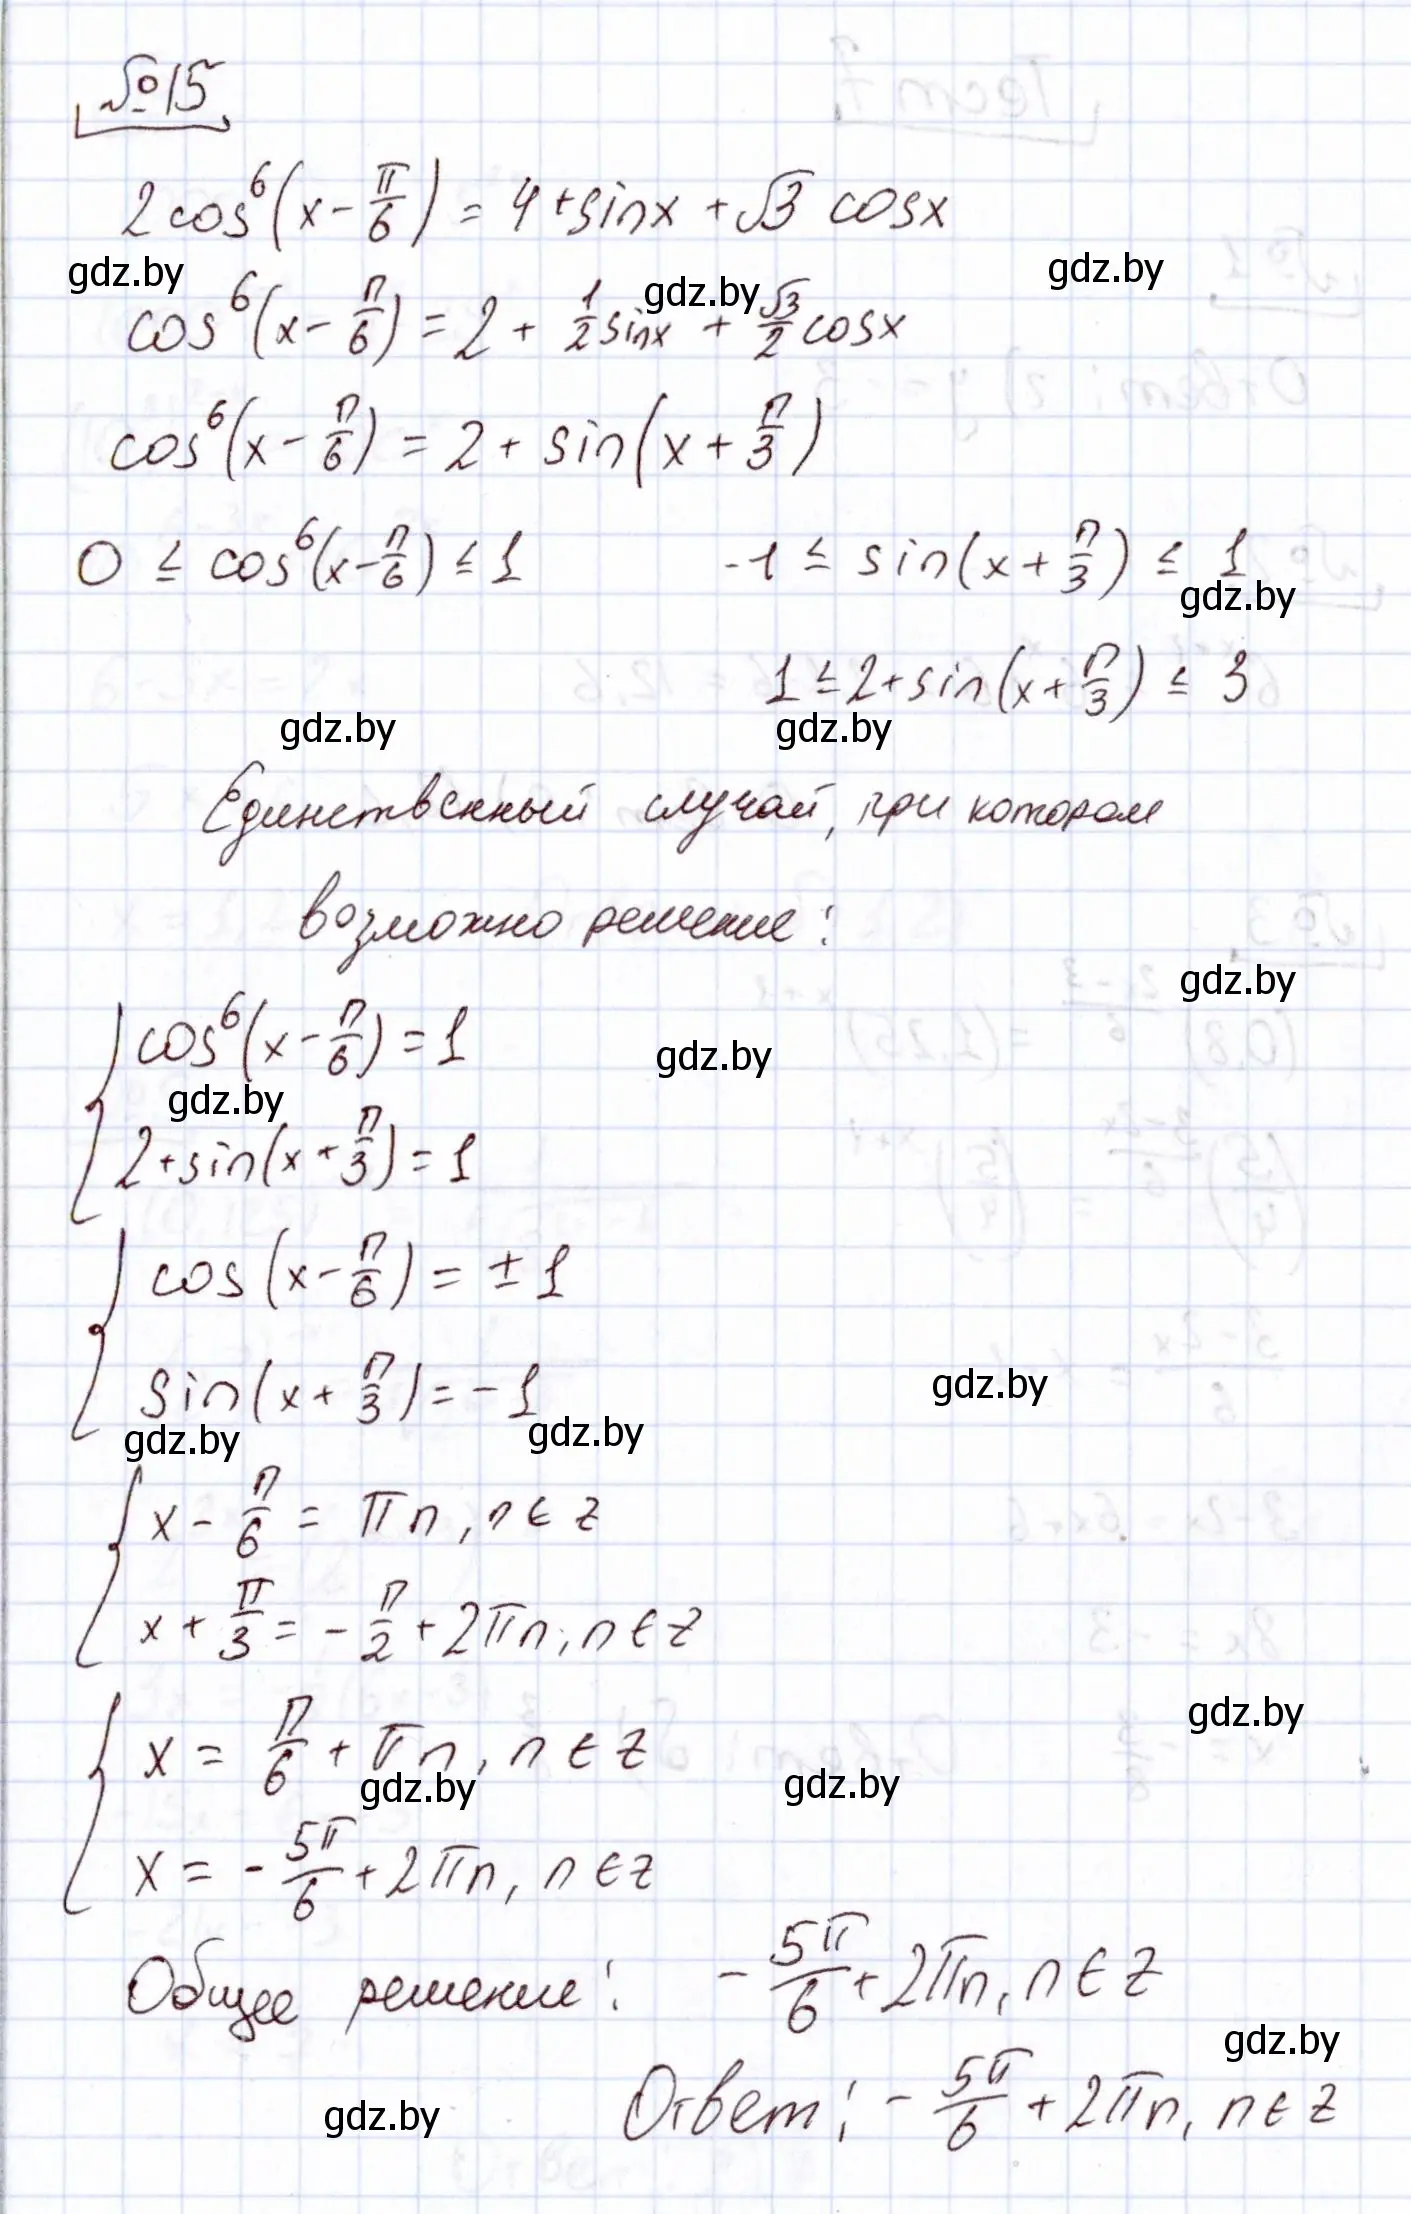 №15
2cos⁶(x - π/6) = 4 + sinx + √3 cosx
gdz.by gdz.by gdz.by
cos⁶(x - π/6) = 2 + 1/2 sinx + √3/2 cosx
cos⁶(x - π/6) = 2 + sin(x + π/3)
0 ≤ cos⁶(x - π/6) ≤ 1 -1 ≤ sin(x + π/3) ≤ 1
gdz.by
1 ≤ 2 + sin(x + π/3) ≤ 3
gdz.by gdz.by
Единственный случай, при котором
возможно решение:
gdz.by
{ cos⁶(x - π/6) = 1
gdz.by gdz.by
2 + sin(x + π/3) = 1
{ cos(x - π/6) = ± 1
sin(x + π/3) = - 1
gdz.by gdz.by gdz.by
{ x - π/6 = πn, n ∈ z
x + π/3 = - π/2 + 2πn, n ∈ z
gdz.by
{ x = π/6 + πn, n ∈ z
gdz.by gdz.by
x = - 5π/6 + 2πn, n ∈ z
Общее решение: - 5π/6 + 2πn, n ∈ z
gdz.by
Ответ: - 5π/6 + 2πn, n ∈ z
gdz.by